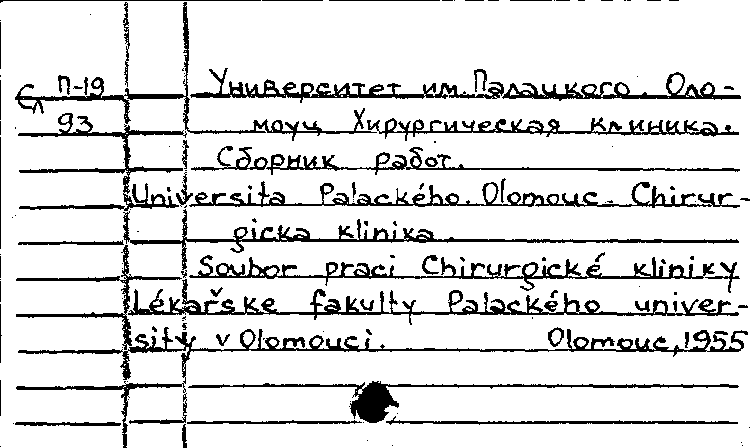 П-19 Университет им. Палацкого. Оло-
Сл
93 моуц Хирургическая клиника.
Сборник работ.
Universita Palackého. Olomouc. Chirur-
gicka klinika.
Soubor praci Chirurgické kliniky
Lékařske fakulty Palackého univer-
sity v Olomouci. Olomouc, 1955